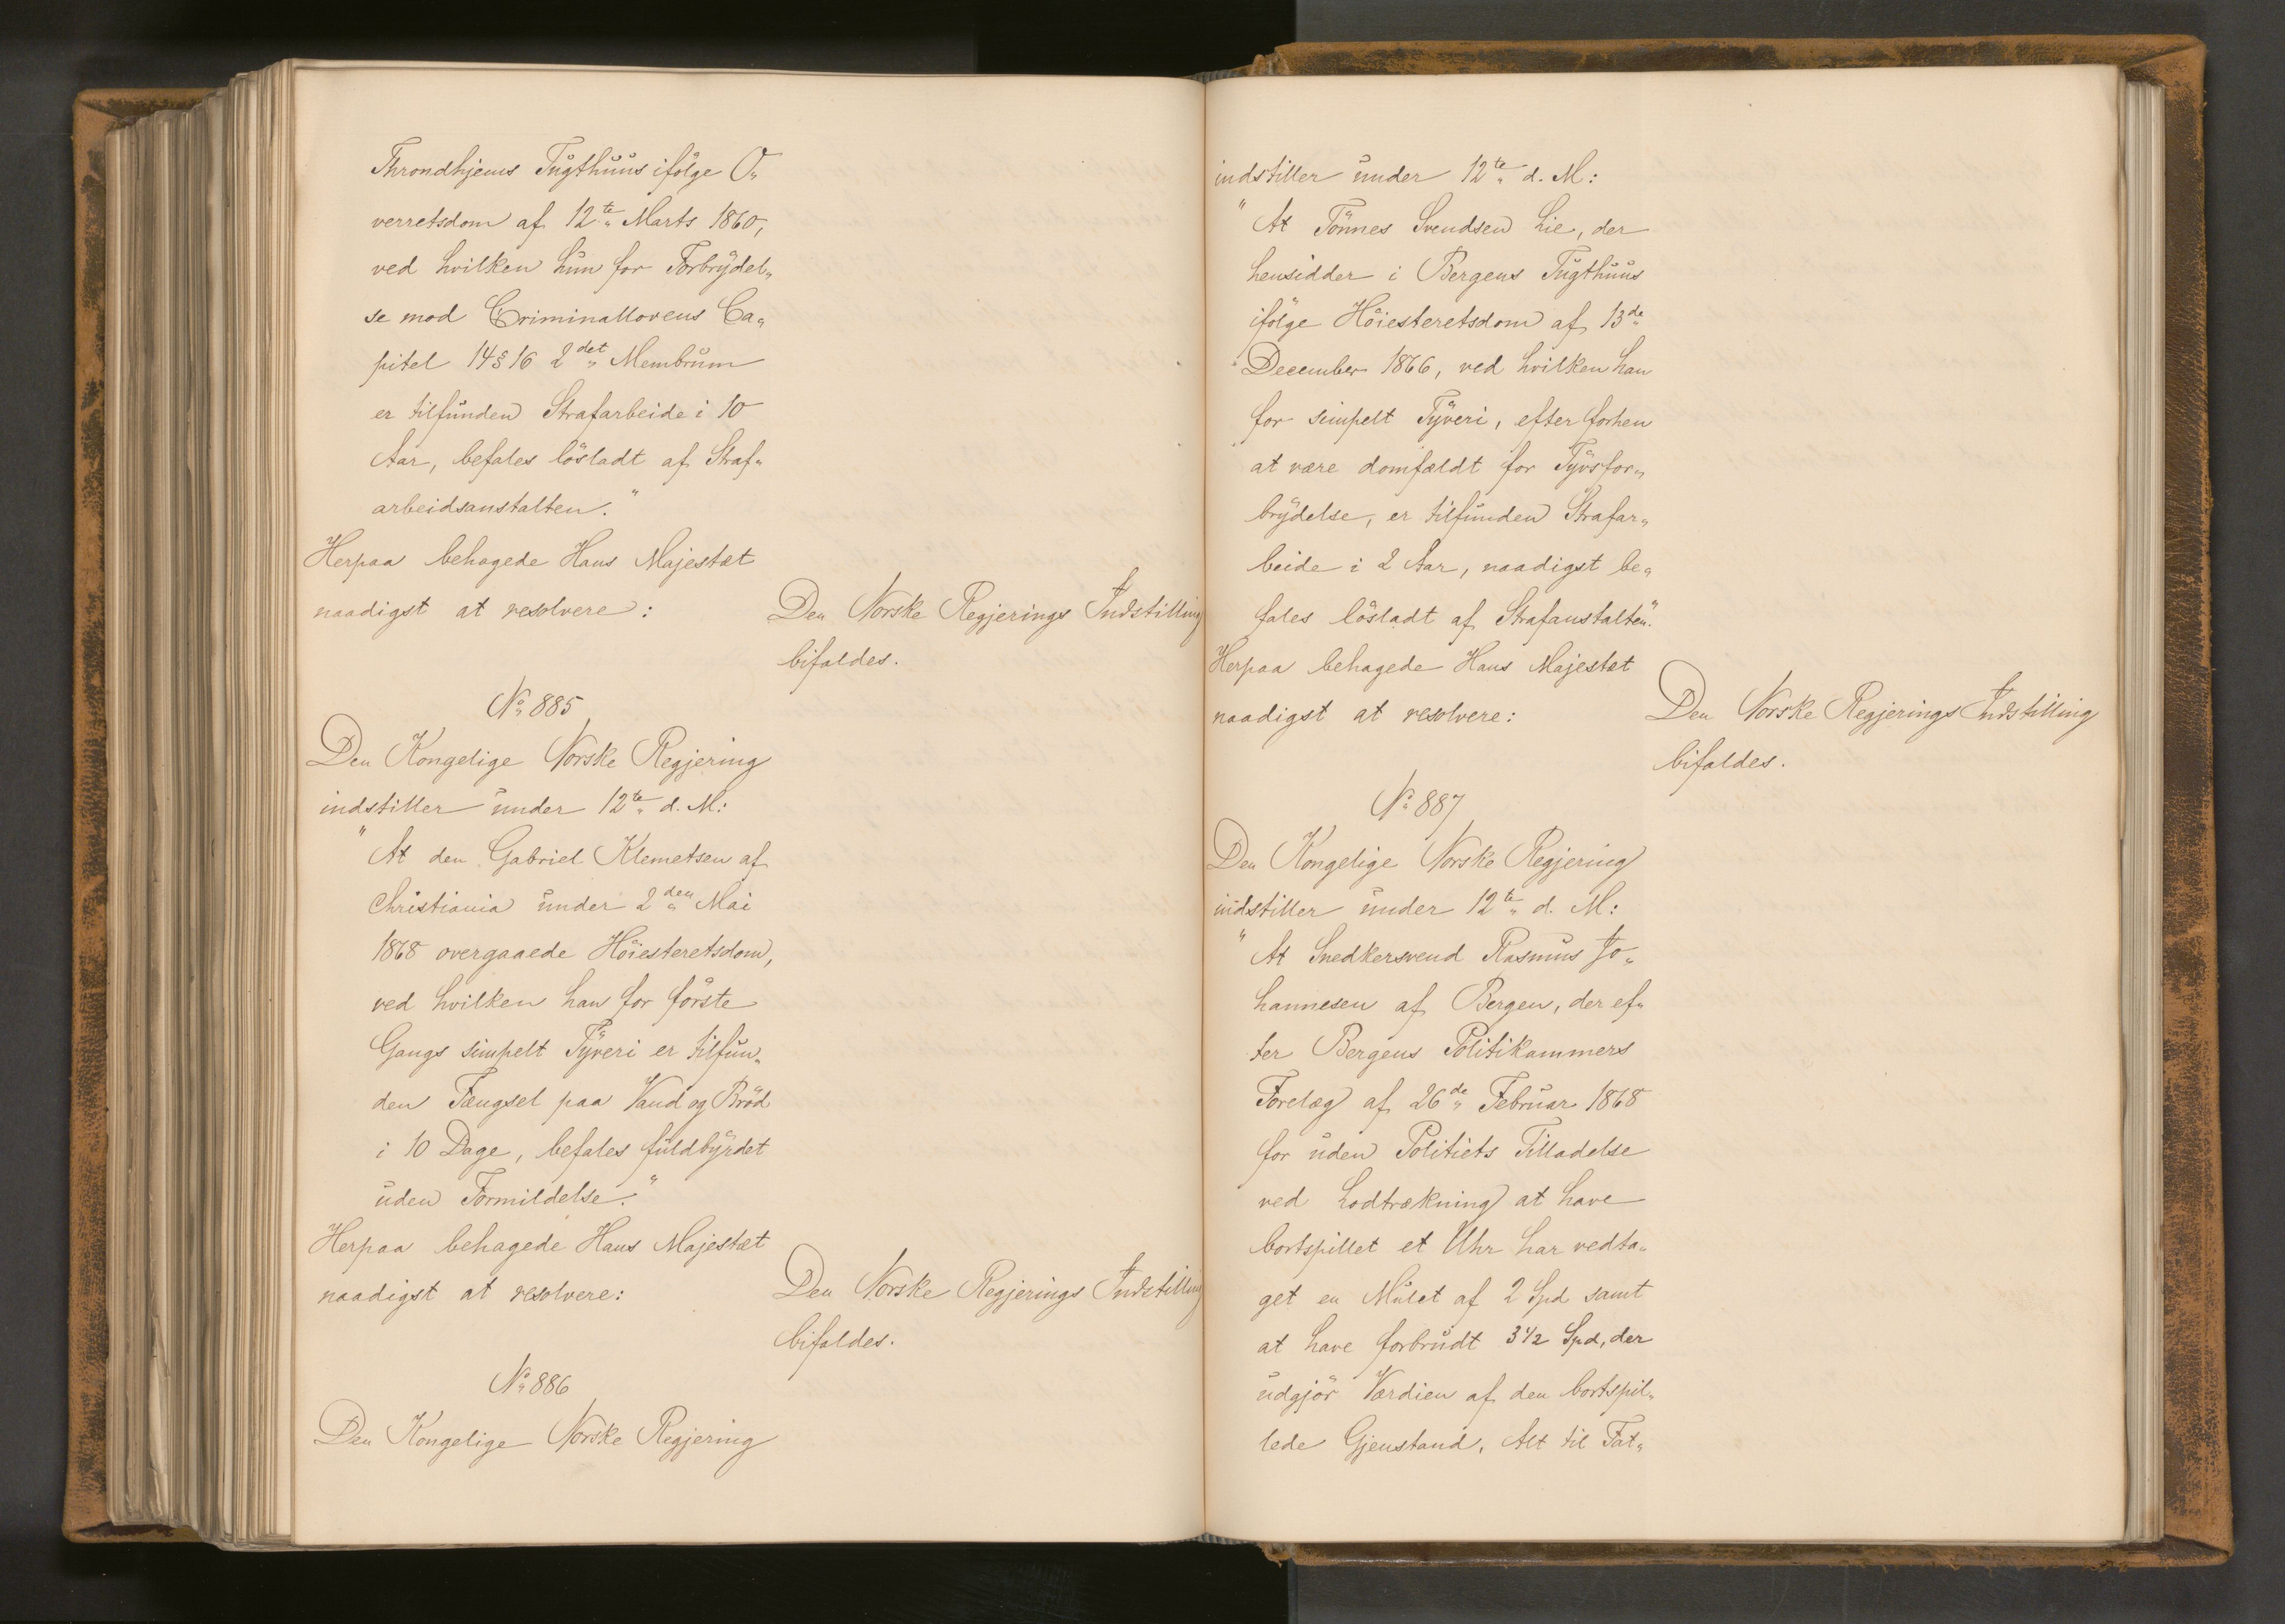 Throndhjems Tugthuus ifölge O„
verretsdom af 12te Marts 1860,
ved hvilken hun for Forbrydel„
se mod Criminallovens Ca„
pitel 14 § 16 2det Membrum
er tilfunden Strafarbeide i 10
Aar, befales lösladt af Straf„
arbeidsanstalten."
Herpaa behagede Hans Majestæt
naadigst at resolvere:
Den Norske Regjerings Indstilling
bifaldes.
No 885
Den Kongelige Norske Regjering
indstiller under 12te d. M:
"At den Gabriel Klemetsen af
Christiania under 2den Mai
1868 overgaaede Höiesteretsdom,
ved hvilken han for förste
Gangs simpelt Tyveri er tilfun„
den Fængsel paa Vand og Bröd
i 10 Dage, befales fuldbyrdet
uden Formildelse."
Herpaa behagede Hans Majestæt
naadigst at resolvere:
Den Norske Regjerings Indstilling
bifaldes.
No 886
Den Kongelige Norske Regjering
indstiller under 12te d. M:
"At Tönnes Svendsen Lie, der
hensidder i Bergens Tugthuus
ifölge Höiesteretsdom af 13de
December 1866, ved hvilken han
for simpelt Tyveri, efter forhen
at være domfældt for Tyvsfor„
brydelse, er tilfunden Strafar„
beide i 2 Aar, naadigst be„
fales lösladt af Strafanstalten."
Herpaa behagede Hans Majestæt
naadigst at resolvere:
Den Norske Regjerings Indstilling
bifaldes.
No 887
Den Kongelige Norske Regjering
indstiller under 12te d. M:
"At Snedkersvend Rasmus Jo„
hannesen af Bergen, der ef„
ter Bergens Politikammers
Forelæg af 26de Februar 1868
for uden Politiets Tilladelse
ved Lodtrækning at have
bortspillet et Uhr har vedta„
get en Mulct af 2 Spd samt
at have forbrudt 3 1/2 Spd, der
udgjör Værdien af den bortspil„
lede Gjenstand, Alt til Fat„